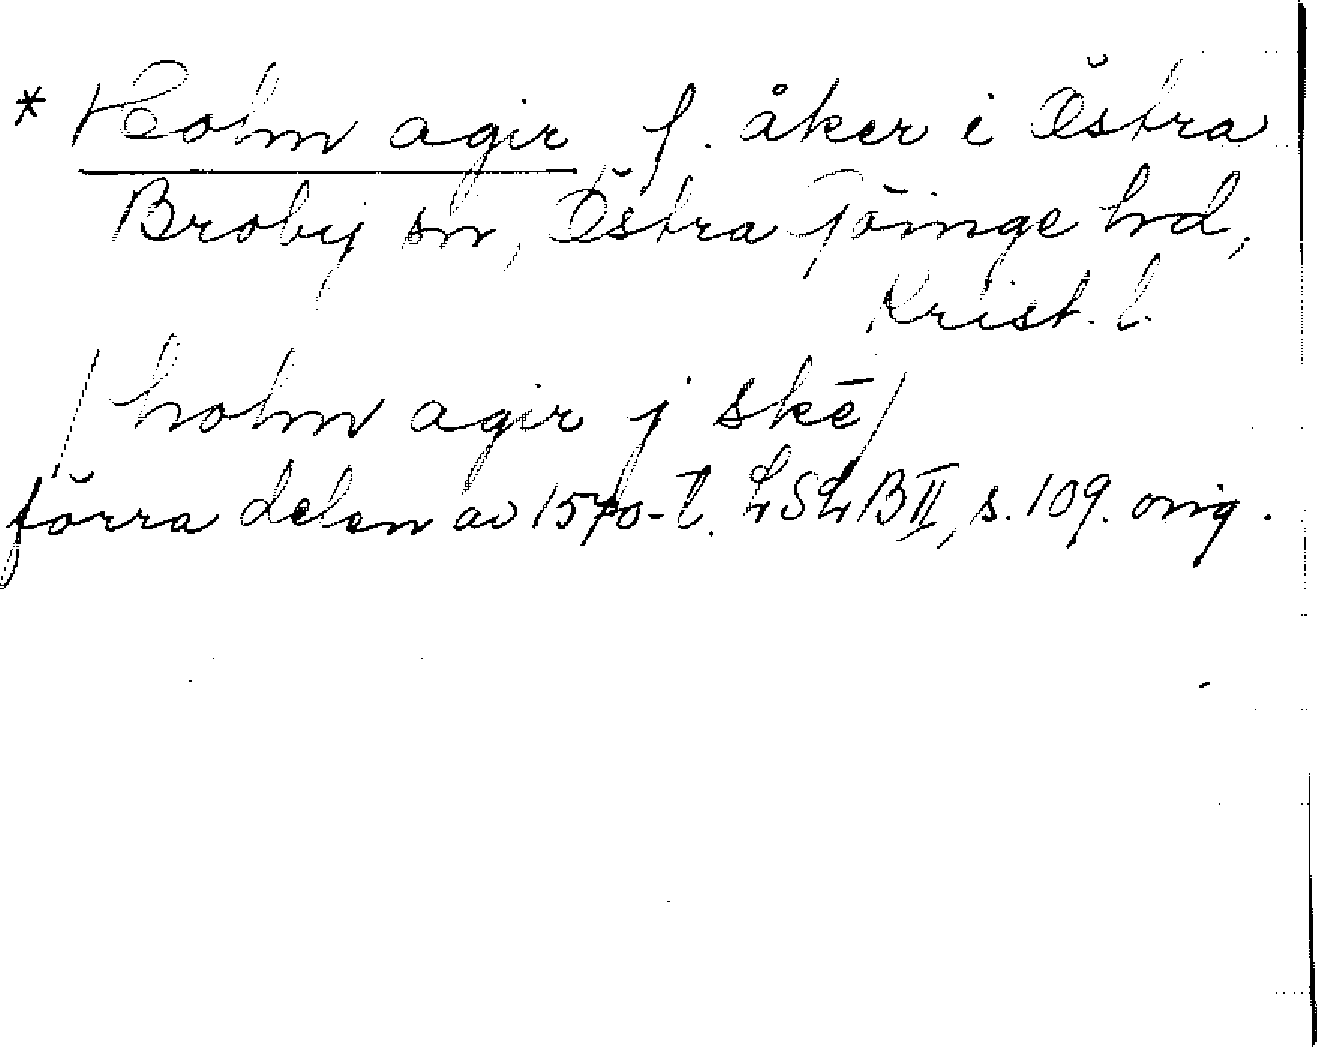 * Holm agir f. åker i Östra
Broby sn, Östra Göinge hd,
Krist. l.
/ holm agir j skē /
förra delen av 1570-t. LSLB II, s. 109. orig.